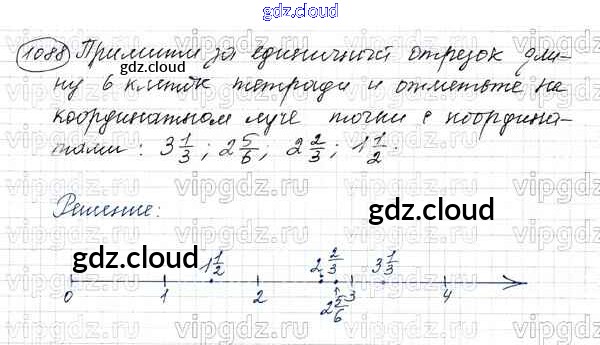 gdz.cloud
1088 Примите за единичный отрезок дли-
gdz.cloud
ну 6 клеток тетради и отметьте на
координатном луче точки с координа-
тами: 3 1/3; 2 5/6; 2 2/3; 1 1/2.
vipgdz vipgdz vipgdz
Решение:
gdz.cloud
gdz.cloud
1 1/2 2 2/3 3 1/3
0 1 2 3 4
2 5/6
vipgdz vipgdz vipgdz